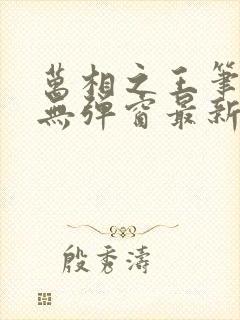 萬相之王筆
無彈窗最新
殷秀濤